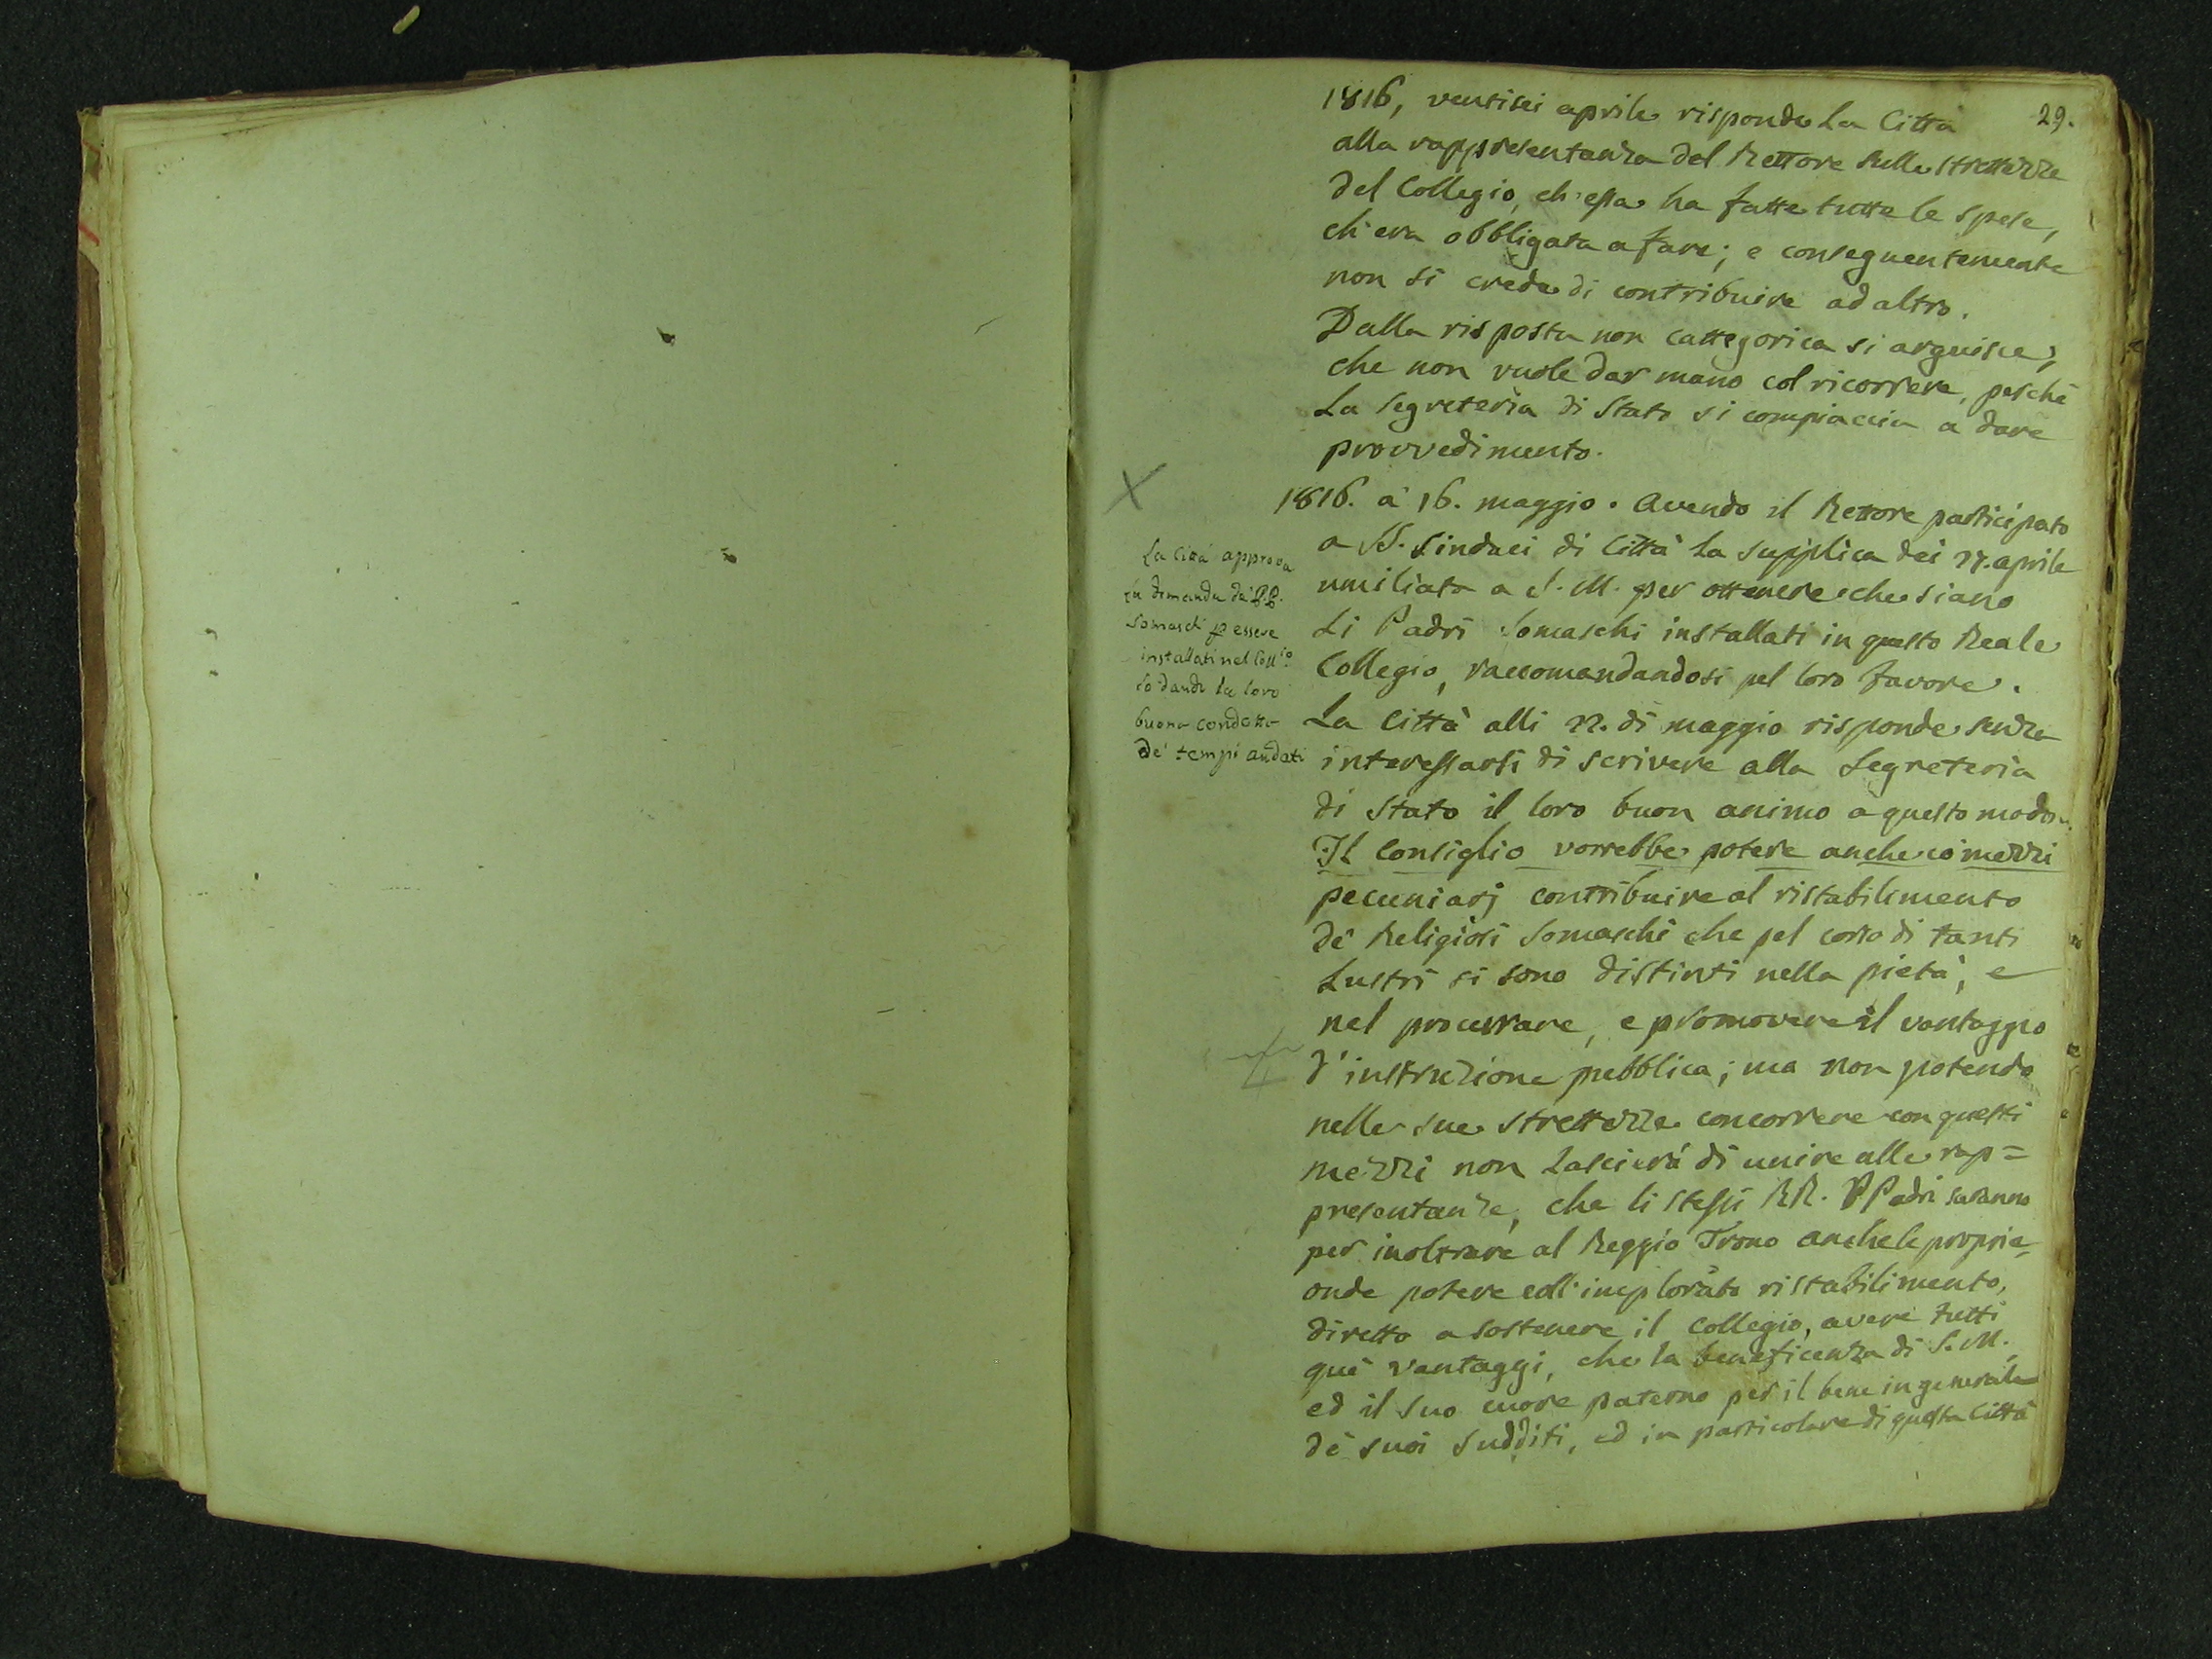 29.
1816, ventisei aprile risponde La Città
alla rappresentanza del Rettore sulle strettezze
del Collegio, ch'essa ha fatte tutte le spese,
ch'era obbligata a fare; e conseguentemente
non si crede di contribuire ad altro.
Dalla risposta non cattegorica si arguisce,
che non vuole dar mano col ricorrere, perchè
La Segreteria di Stato si compiaccia a dare
provvedimento.
1816. a' 16. maggio. Avendo il Rettore participato
a SS. Sindaci di Città la supplica dei 27. aprile
umiliata a S. M. per ottenere che siano
Li Padri Somaschi installati in questo Reale
Collegio, raccomandandosi pel loro favore.
La Città alli 22. di maggio risponde senza
interessarsi di scrivere alla Segreteria
di Stato il loro buon animo a questo modo.
Il Consiglio vorrebbe potere anche co' mezzi
pecuniarj contribuire al ristabilimento
de' Religiosi Somaschi che pel corso di tanti
Lustri si sono distinti nella pietà, e
nel procurare, e promovere il vantaggio
d'instruzione pubblica; ma non potendo
nelle sue strettezze concorrere con questi
mezzi non Lascierà di unire alle rap=
presentanze, che li stessi RR. PPadri saranno
per inoltrare al Reggio Trono anche le proprie,
onde potere coll'implorato ristabilimento,
diretto a sostenere il Collegio, avere tutti
que' vantaggi, che la beneficenza di S. M.,
ed il suo cuore paterno per il bene in generale
de' suoi sudditi, ed in particolare di questa Città
La Città approva
la domanda de' P.P.
Somaschi p essere
installati nel Coll.io
lodando la loro
buona condotta
de' tempi andati